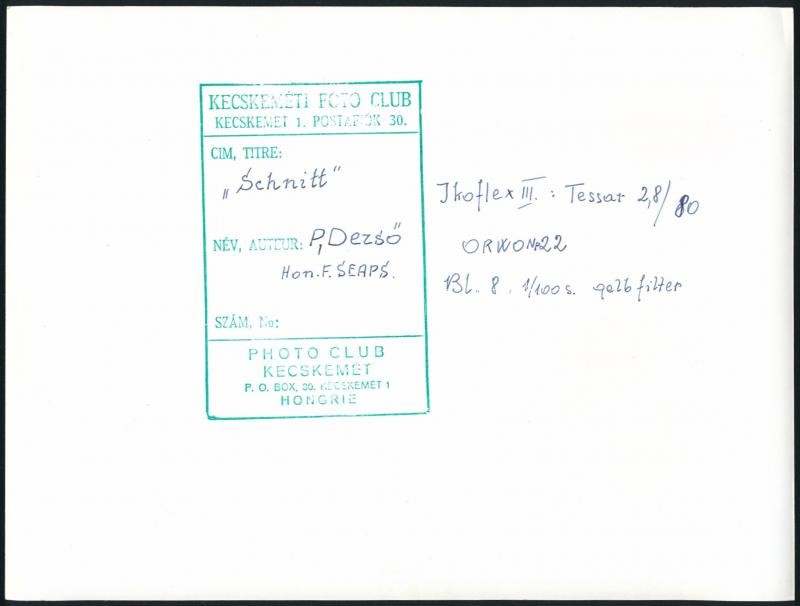 KECSKEMÉTI FOTO CLUB
KECSKEMET 1. POSTAFIÓK 30.
CIM, TITRE:
„Schnitt"
NÉV, AUTEUR: P, Dezső
Hon. F. SEAPS.
SZÁM, No:
PHOTO CLUB
KECSKEMÉT
P. O. BOX, 30. KECSKEMÉT 1
HONGRIE
Ikoflex III. : Tessar 2,8/80
ORWO NP 22
Bl. 8. 1/100 s. gelbfilter